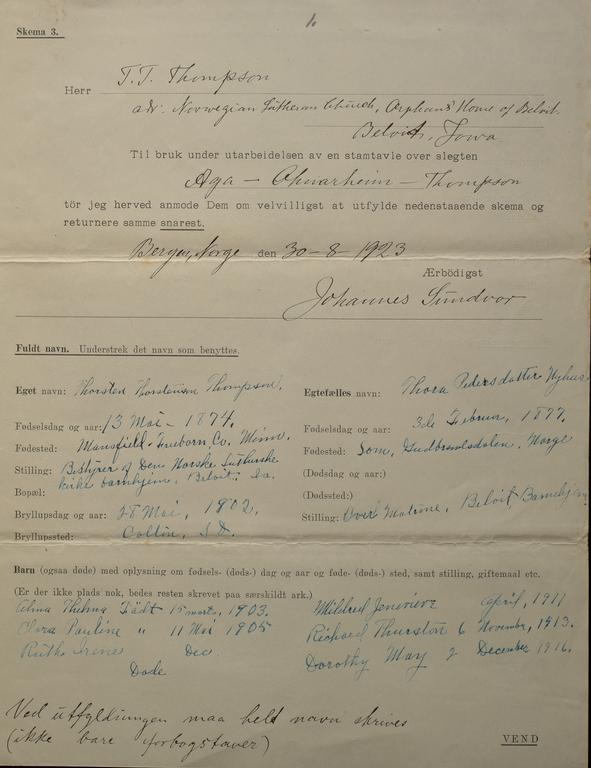 1.
Skema 3.
Herr T. T. Thompson
adr. Norwegian Lutheran Church, Orphans Home of Beloit.
Beloit, Iowa
Til bruk under utarbeidelsen av en stamtavle over slegten
Aga — Ohnarheim — Thompson
tör jeg herved anmode Dem om velvilligst at utfylde nedenstaaende skema og
returnere samme snarest.
Bergen, Norge den 30-8-1923
Ærbödigst
Johannes Sundvor
Fuldt navn. Understrek det navn som benyttes.
Eget navn: Thorsten Thorstensen Thompson.
Fødselsdag og aar: 13 Mai - 1874.
Fødested: Mansfield. Freeborn Co. Minn.
Stilling: Bestyrer af Den Norske Lutherske
kirke barnhjem, Beloit. Ia.
Bopæl:
Bryllupsdag og aar: 28 Mai, 1902.
Bryllupssted: Colton, S.D.
Egtefælles navn: Thora Pedersdatter Nyhus
Fødselsdag og aar: 3de Februar, 1877.
Fødested: Fron, Gudbrandsdalen, Norge
(Dødsdag og aar:)
(Dødssted:)
Stilling: Over Matrone, Beloit, Barnehjem
Barn (ogsaa døde) med oplysning om fødsels- (døds-) dag og aar og føde- (døds-) sted, samt stilling, giftemaal etc.
(Er der ikke plads nok, bedes resten skrevet paa særskildt ark.)
Alma Thelma Född 15 marts, 1903.
Clara Pauline " 11 Mai 1905
Ruth Irene Dec.
Døde
Mildred Jenevieve April, 1911
Richard Thurston 6 November, 1913.
Dorothy May 2 December 1916.
Ved utfyldningen maa helt navn skrives
(ikke bare forbogstaver)
VEND